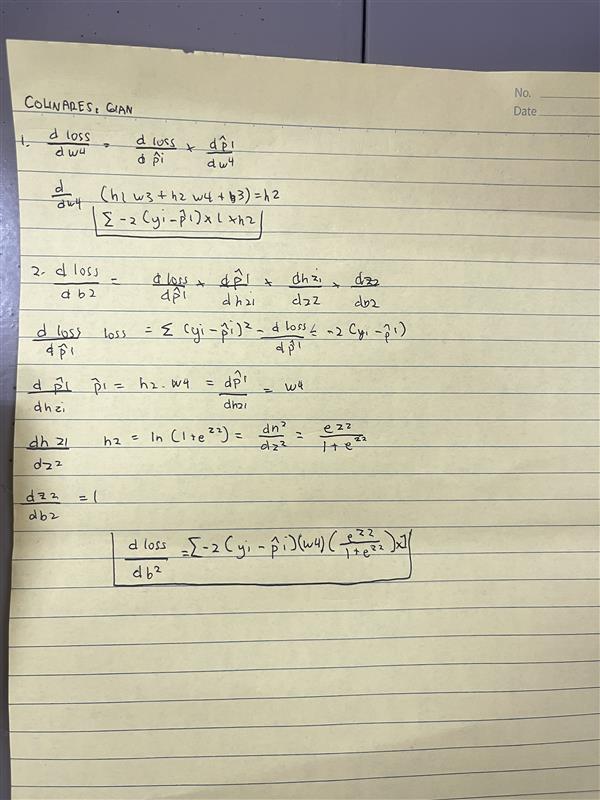 No.
Date
COLINARES, GIAN
1. d loss / d w4 = d loss / d p̂i × d p̂1 / d w4
d / dw4 (h1 w3 + h2 w4 + b3) = h2
Σ -2 (yi - p̂1) × 1 × h2
2. d loss / d b2 = d loss / d p̂1 × d p̂1 / d h2i × dh2i / dz2 × dz2 / db2
d loss / d p̂1 loss = Σ (yi - p̂i)² - d loss / d p̂1 = -2 (yi - p̂1)
d p̂1 / dh2i p̂1 = h2 . w4 = dp̂1 / dh2i = w4
dh 2i / dz2 h2 = ln (1 + e^z2) = dh² / dz² = e^z2 / 1 + e^z2
dz2 / db2 = 1
d loss / db² = Σ -2 (yi - p̂i)(w4)(e^z2 / 1 + e^z2) × 1